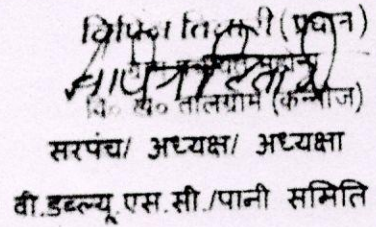 विपिन तिवारी (प्रधान)
वि० ख० तालग्राम (कन्नौज)
सरपंच/ अध्यक्ष/ अध्यक्षा
वी.डब्ल्यू.एस.सी./पानी समिति